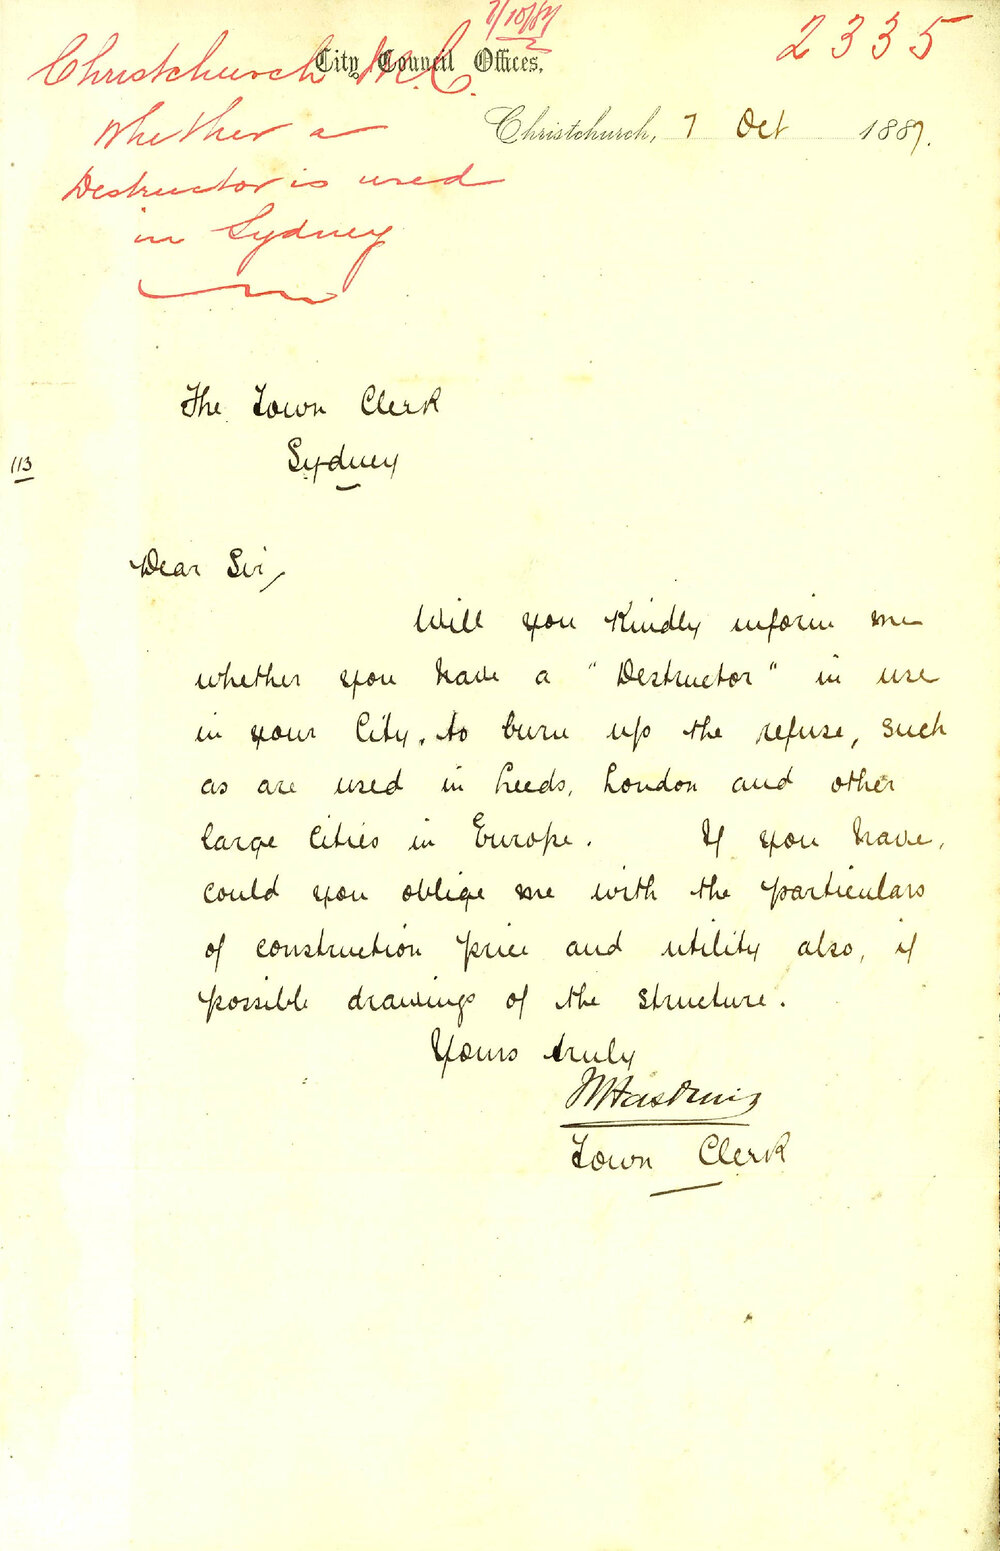 7/10/87
2335
Christchurch M.C.
City Council Offices,
Whether a
Christchurch, 7 Oct 1887.
Destructor is used
in Sydney
The Town Clerk
Sydney
113
Dear Sir,
Will you kindly inform me
whether you have a "Destructor" in use
in your City, to burn up the refuse, such
as are used in Leeds, London and other
large Cities in Europe. If you have,
could you oblige me with the particulars
of construction price and utility also, if
possible drawings of the structure.
Yours truly
Haskins
Town Clerk